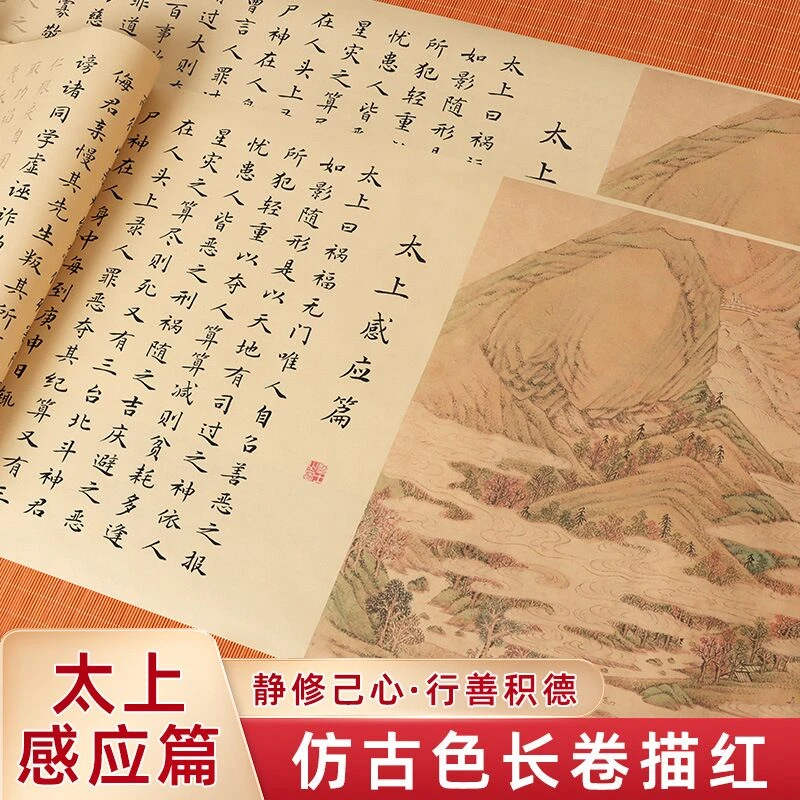 太上
太上曰祸
如影随形
所犯轻重
忧患人皆
星灾之算
在人头上
尸神在人
曹言人罪过
过大则
百事
非道
慈
太上感应篇
太上曰祸福无门唯人自召善恶之报
如影随形是以天地有司过之神依人
所犯轻重以夺人算算减则贫耗多逢
忧患人皆恶之刑祸随之吉庆避之恶
星灾之算尽则死又有三台北斗神君
在人头上录人罪恶夺其纪算又有三
尸神在人身中每到庚申日辄
侮君亲慢其先生叛其所
谤诸同学虚诬诈
太上
感应篇
静修己心·行善积德
仿古色长卷描红